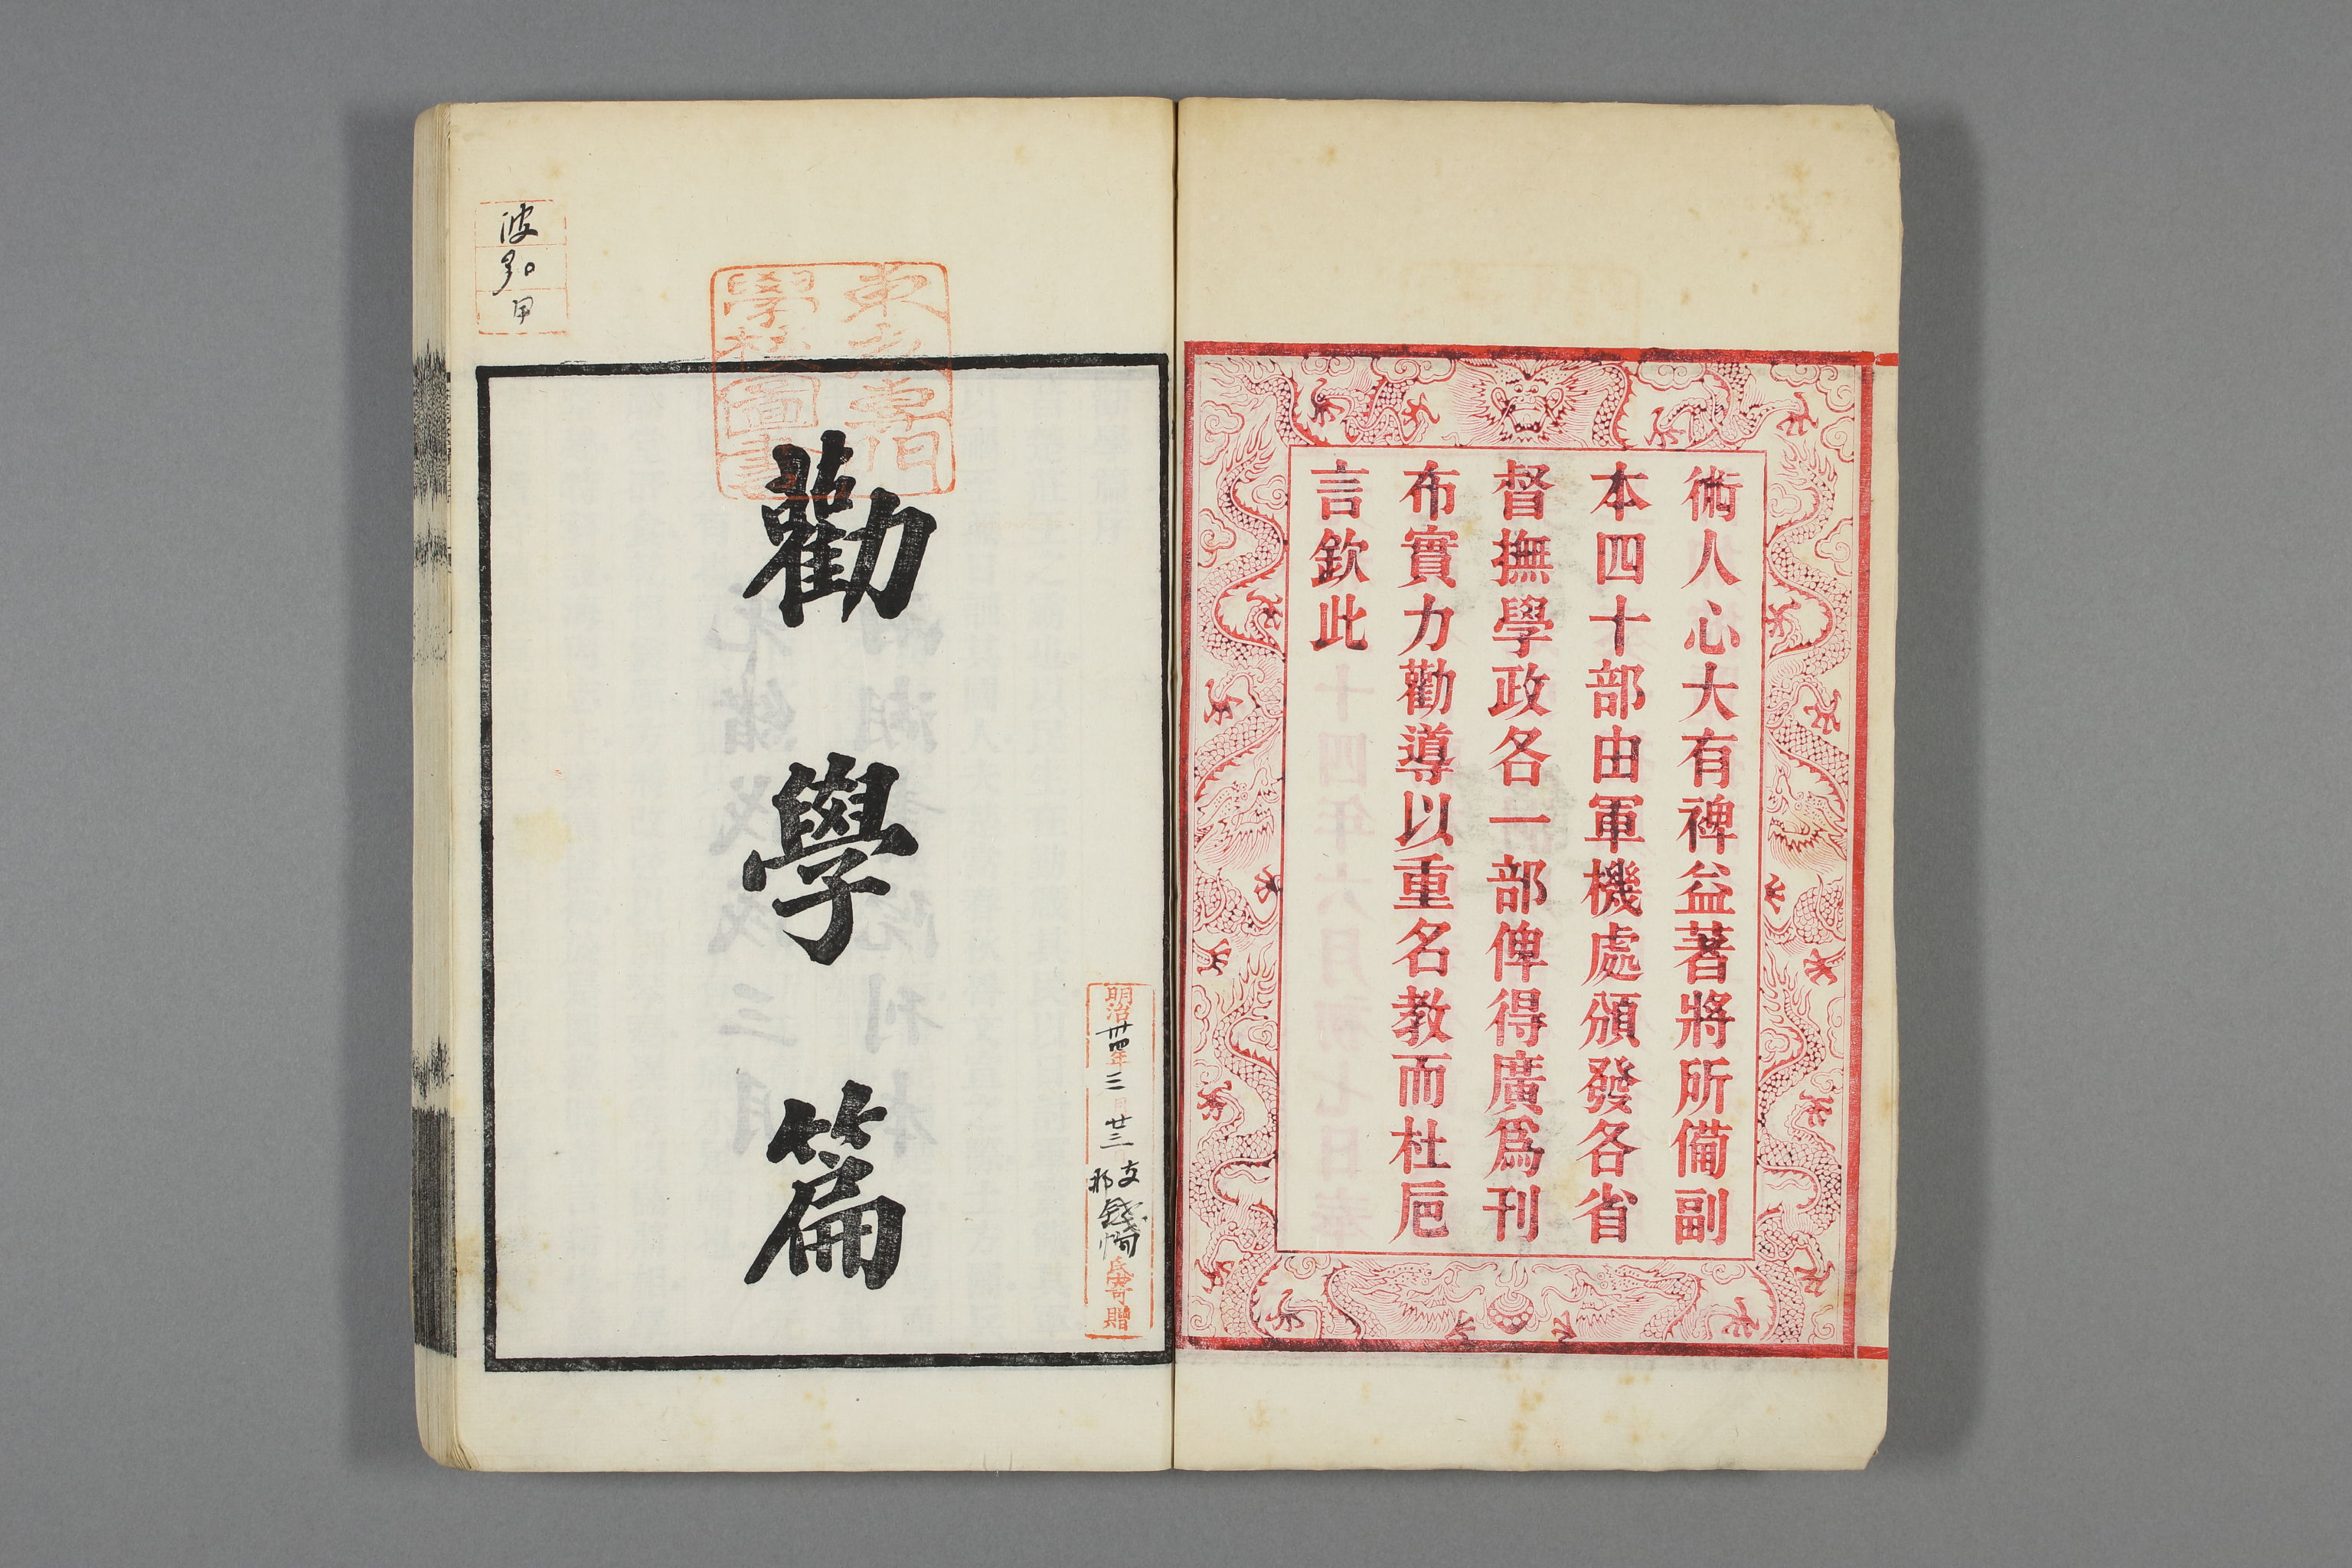 術人心大有裨益著將所備副
本四十部由軍機處頒發各省
督撫學政各一部俾得廣爲刊
布實力勸導以重名教而杜卮
言欽此
勸學篇
東京專門
學校圖書
明治卅四年三月廿三
支那
錢恂
氏寄贈
甲